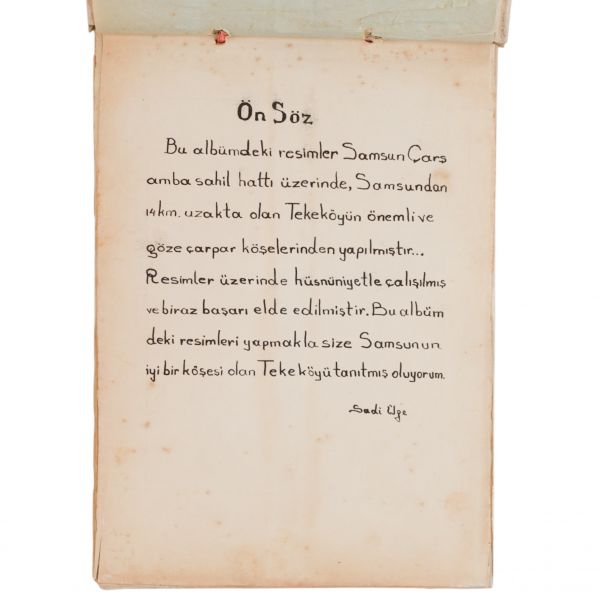 Ön Söz
Bu albümdeki resimler Samsun Çarş
amba sahil hattı üzerinde, Samsundan
14 km. uzakta olan Tekeköyün önemli ve
göze çarpar köşelerinden yapılmıştır...
Resimler üzerinde hüsnüniyetle çalışılmış
ve biraz başarı elde edilmiştir. Bu albüm
deki resimleri yapmakla size Samsunun
iyi bir köşesi olan Tekeköyü tanıtmış oluyorum.
Sadi